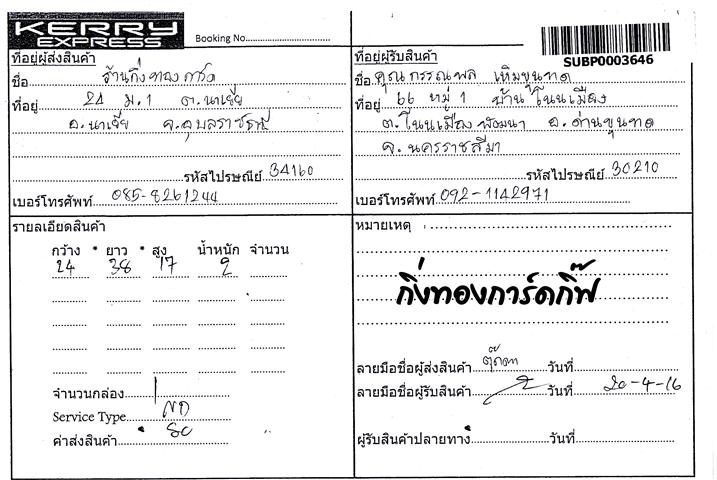 KERRY
EXPRESS
Booking No.
SUBP0003646
ที่อยู่ผู้ส่งสินค้า
ชื่อ ร้านกิ่งทองการ์ด
ที่อยู่ 24 ม.1 ต.นาเยีย
อ.นาเยีย จ.อุบลราชธานี
รหัสไปรษณีย์ 34160
เบอร์โทรศัพท์ 085-8261244
ที่อยู่ผู้รับสินค้า
ชื่อ คุณกรรณพล
ที่อยู่ 66 หมู่ 1 บ้านโนนเมือง
ต.โนนเมืองพัฒนา อ.ด่านขุนทด
จ.นครราชสีมา
รหัสไปรษณีย์ 30210
เบอร์โทรศัพท์ 092-1142971
รายละเอียดสินค้า
กว้าง * ยาว * สูง น้ำหนัก จำนวน
24 38 17 2
จำนวนกล่อง 1
Service Type ND
ค่าส่งสินค้า
หมายเหตุ
กิ่งทองการ์ดกิ๊ฟ
ลายมือชื่อผู้ส่งสินค้า ตุ๊กตา วันที่
ลายมือชื่อผู้รับสินค้า วันที่ 20-4-16
ผู้รับสินค้าปลายทาง วันที่